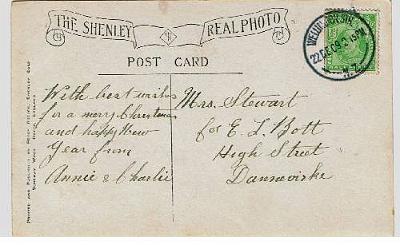 THE SHENLEY REAL PHOTO
POST CARD
22 DE 09
With best wishes
for a merry Christmas
and happy New
Year from
Annie & Charlie
Mrs. Stewart
for E L Bott
High Street
Dannevirke